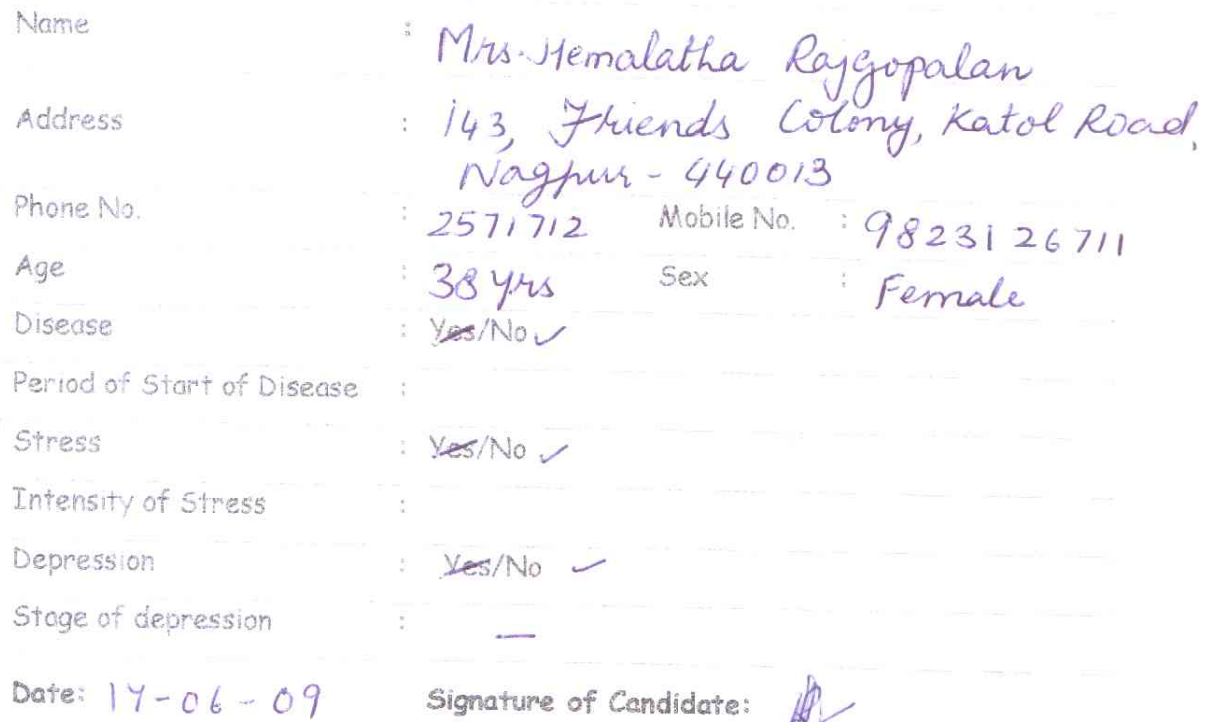 Name : Mrs. Hemalatha Rajgopalan
Address : 143, Friends Colony, Katol Road,
Nagpur - 440013
Phone No. : 2571712 Mobile No. : 9823126711
Age : 38 yrs Sex : Female
Disease : Yes/No ✓
Period of Start of Disease :
Stress : Yes/No ✓
Intensity of Stress :
Depression : Yes/No ✓
Stage of depression : —
Date: 14-06-09 Signature of Candidate: